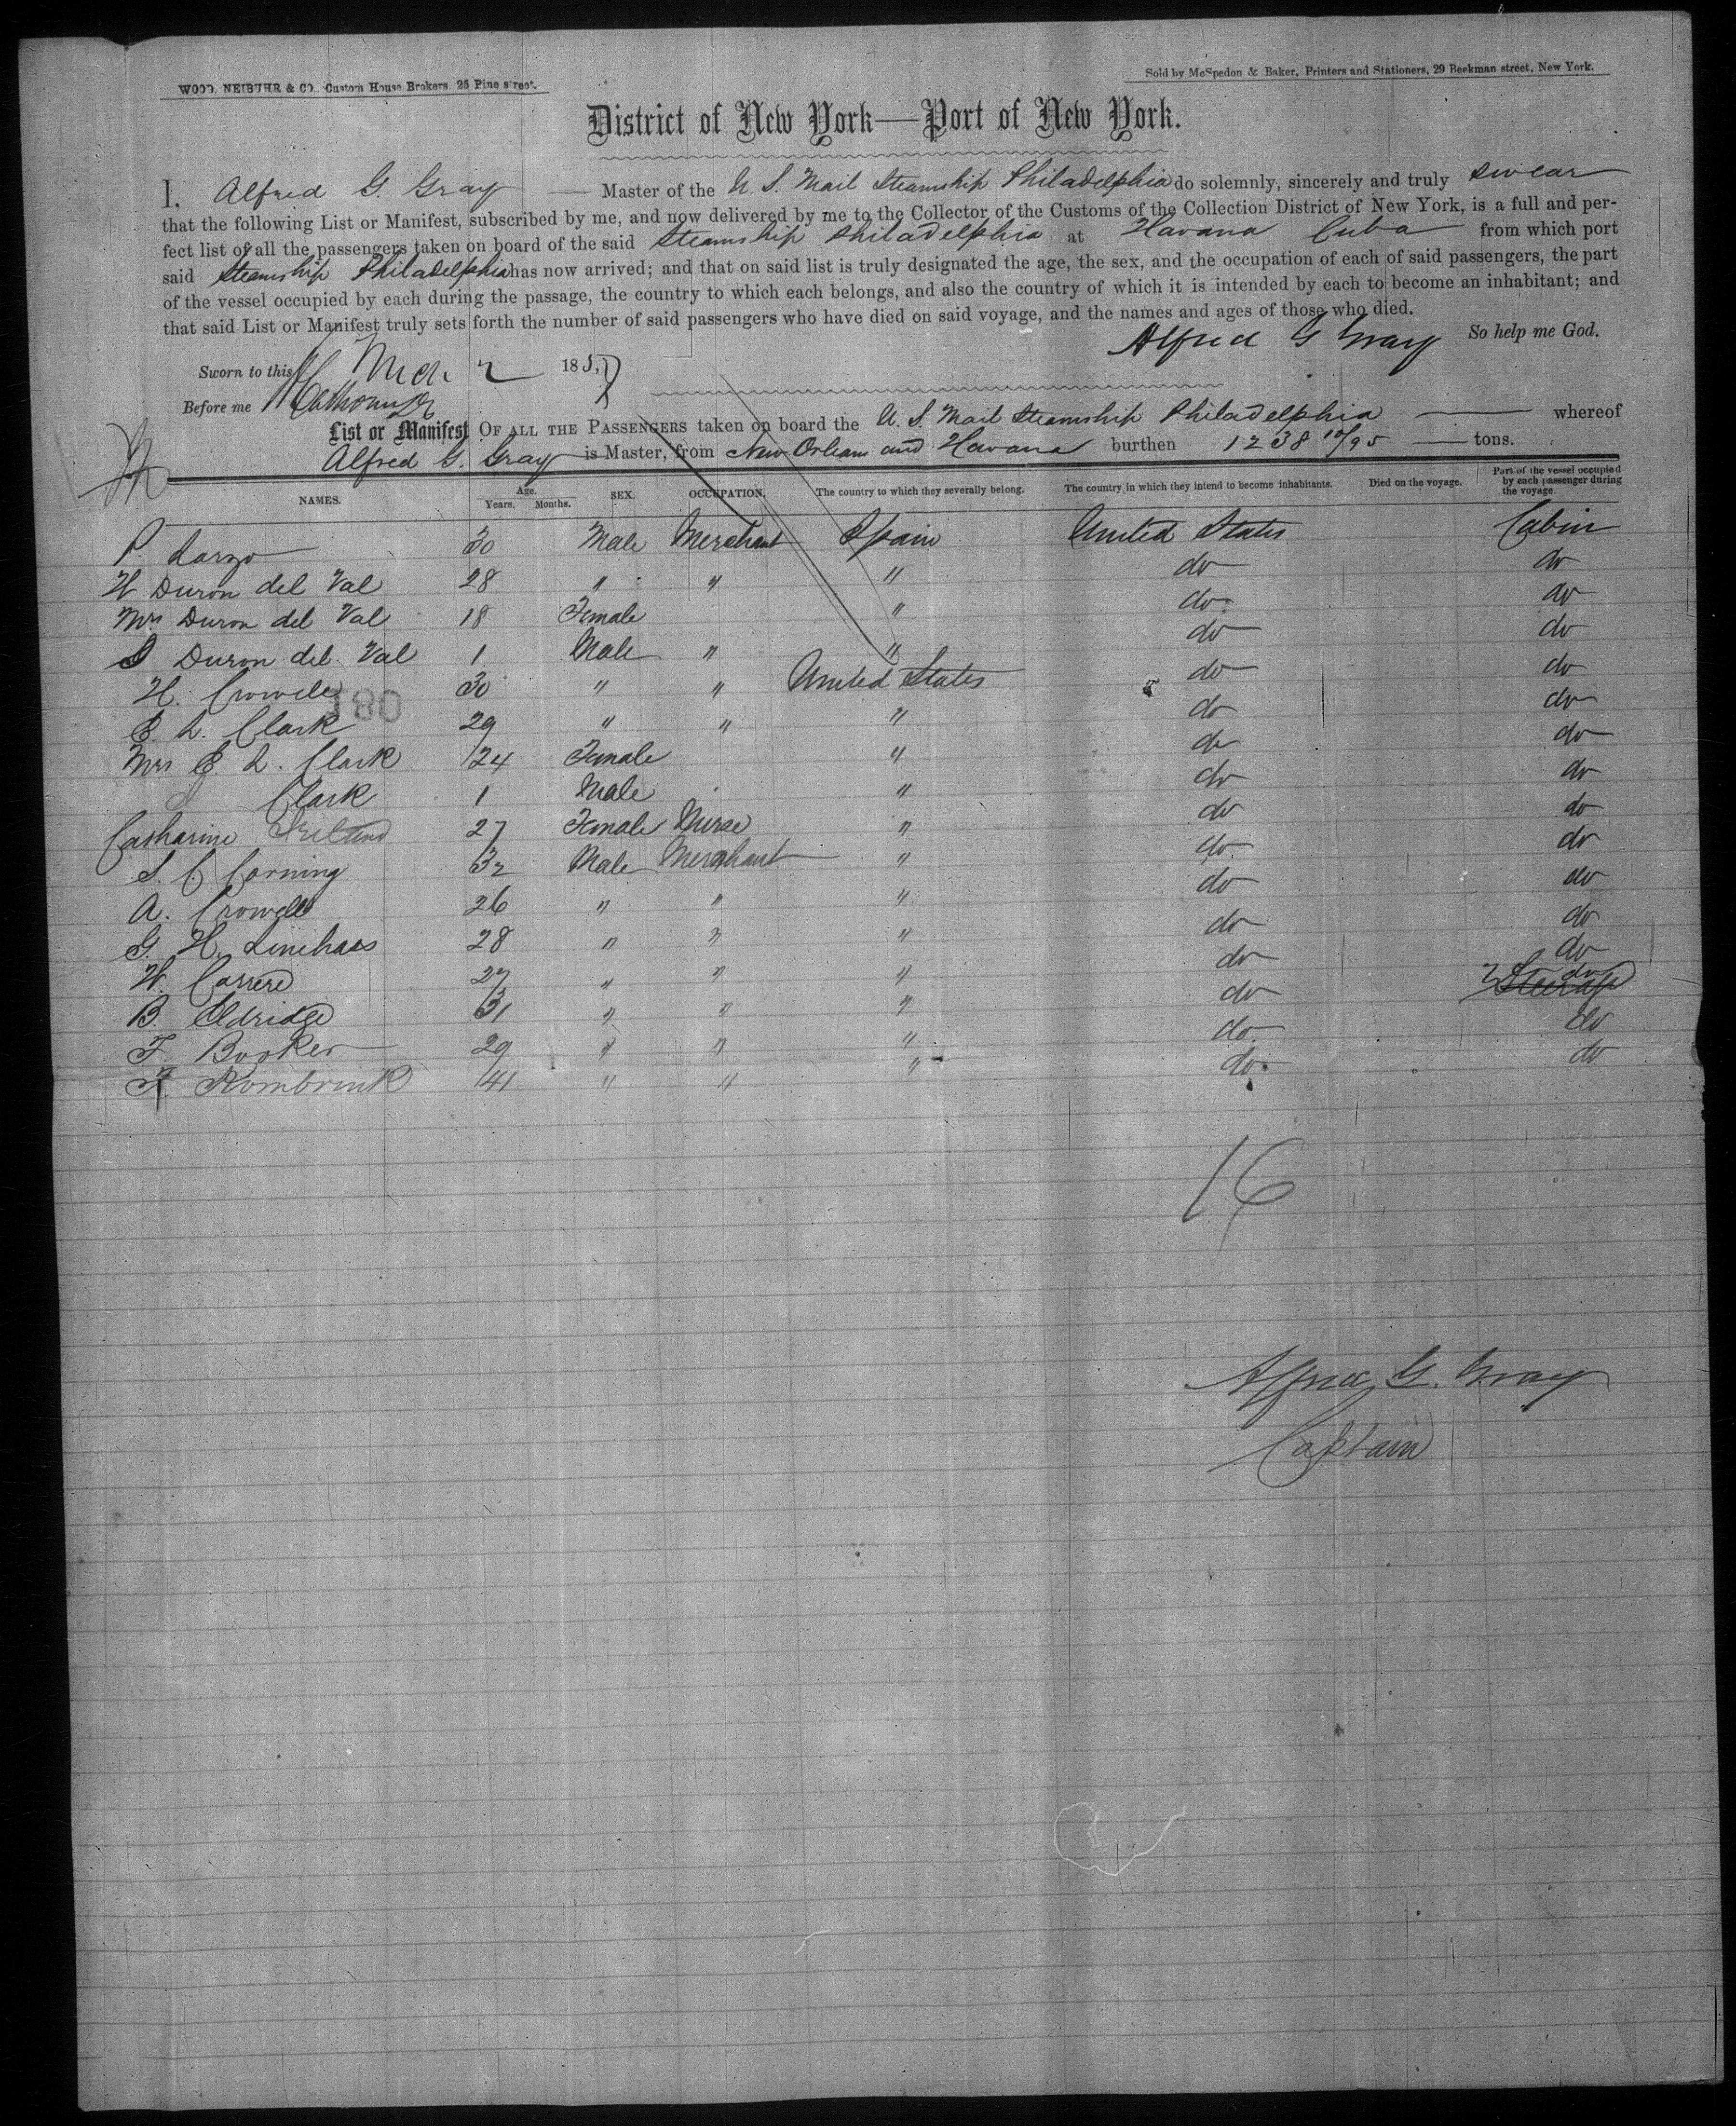 WOOD, NEIBUHR & CO., Custom House Brokers 25 Pine street.
Sold by McSpedon & Baker, Printers and Stationers, 29 Beekman street, New York.
District of New York—Port of New York.
I, Alfred G. Gray — Master of the U. S. Mail Steamship Philadelphia do solemnly, sincerely and truly swear
that the following List or Manifest, subscribed by me, and now delivered by me to the Collector of the Customs of the Collection District of New York, is a full and per-
fect list of all the passengers taken on board of the said Steamship Philadelphia at Havana Cuba from which port
said Steamship Philadelphia has now arrived; and that on said list is truly designated the age, the sex, and the occupation of each of said passengers, the part
of the vessel occupied by each during the passage, the country to which each belongs, and also the country of which it is intended by each to become an inhabitant; and
that said List or Manifest truly sets forth the number of said passengers who have died on said voyage, and the names and ages of those who died.
Alfred G Gray So help me God.
Sworn to this Mch 2 1857
Before me
List or Manifest OF ALL THE PASSENGERS taken on board the U. S. Mail Steamship Philadelphia — whereof
Alfred G. Gray is Master, from New Orleans and Havana burthen 1238 10/95 — tons.
NAMES. Age. Years. Months. SEX. OCCUPATION. The country to which they severally belong. The country in which they intend to become inhabitants. Died on the voyage. Part of the vessel occupied by each passenger during the voyage
P. 30 Male Merchant Spain United States Cabin
W Duron del Val 28 " " " do do
Mrs Duron del Val 18 Female " do do
Duron del Val 1 Male " " do do
H. Crowell 30 " " United States do do
180
E. L. Clark 29 " " " do do
Mrs E. L. Clark 24 Female " do do
Clark 1 Male " do do
Catharine 27 Female Nurse " do do
S. C Corning 32 Male Merchant " do do
A. Crowell 26 " " " do do
G. H. Linehaas 28 " " " do do
W. Carrere 27 " " " do do
B. Eldridge 31 " " " do Steerage do
F. Booker 29 " " " do do
F. Kombrink 41 " " " do do
16
Alfred G. Gray
Captain